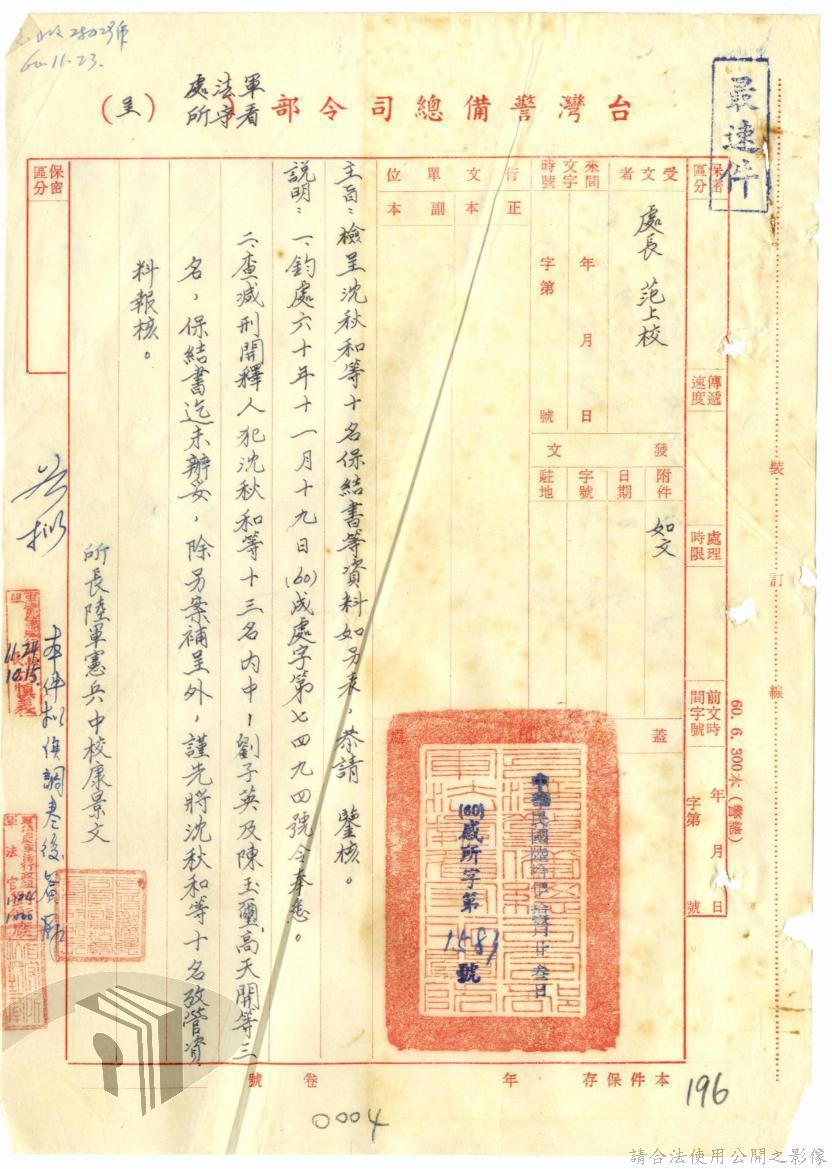 2502號
60.11.23.
最速件
台灣警備總司令部 軍法處看守所 （呈）
保密區分
傳遞速度
處理時限
前文時間字號 年 月 日 字第 號
受文者
處長 范上校
來文時間字號 年 月 日 字第 號
行文單位
正本
副本
發文
附件
如文
日期
字號
駐地
蓋印處
中華民國陸拾年拾壹月廿叁日
(60)感所字第1581號
主旨：檢呈沈秋和等十名保結書等資料如另表，恭請 鑒核。
說明：一、鈞處六十年十一月十九日(60)成處字第七四九四號令奉悉。
二、查減刑開釋人犯沈秋和等十三名內中，劉子英及陳玉璽、高天開等三
名，保結書迄未辦妥，除另案補呈外，謹先將沈秋和等十名考管資
料報核。
所長陸軍憲兵中校康景文
保密區分
本件擬俟調卷後簽辦
11.24
10.15.
軍法官
1124
1000
本件保存 年
卷 號
裝訂線
60. 6. 300本
196
0004
請合法使用公開之影像